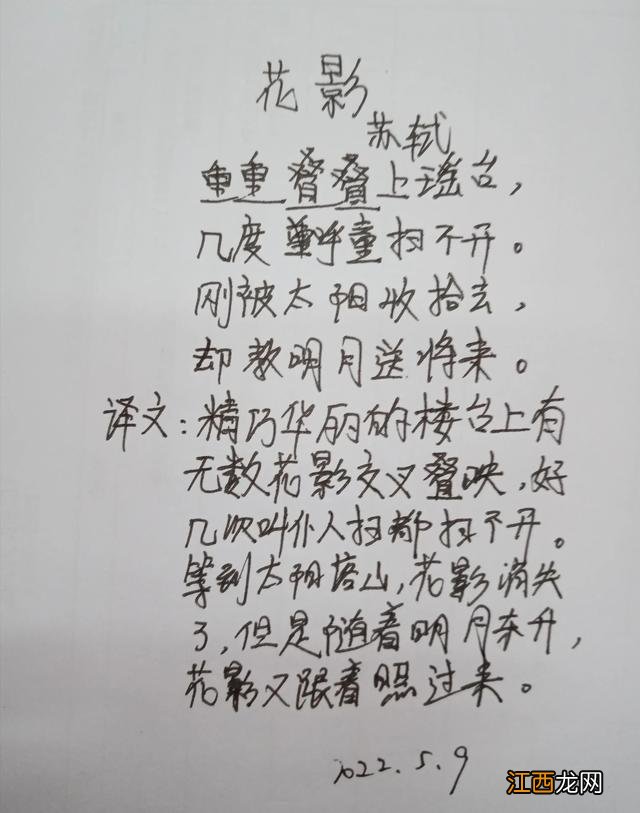 花影
苏轼
重重叠叠上瑶台，
几度呼童扫不开。
刚被太阳收拾去，
却教明月送将来。
译文：精巧华丽的楼台上有
无数花影交叉叠映，好
几次叫仆人扫都扫不开。
等到太阳落山，花影消失
了，但是随着明月东升，
花影又跟着照过来。
2022.5.9
江西龙网